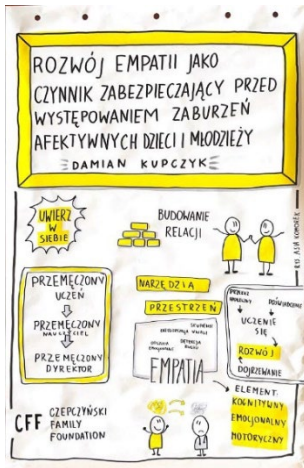 ROZWÓJ EMPATII JAKO
CZYNNIK ZABEZPIECZAJĄCY PRZED
WYSTĘPOWANIEM ZABURZEŃ
AFEKTYWNYCH DZIECI I MŁODZIEŻY
DAMIAN KUPCZYK
UWIERZ
W
SIEBIE
BUDOWANIE
RELACJI
PRZEMĘCZONY
UCZEŃ
PRZEMĘCZONY
NAUCZYCIEL
PRZEMĘCZONY
DYREKTOR
NARZĘDZIA
PRZESTRZEŃ
EMPATIA
UCZENIE
SIĘ
ROZWÓJ
DOJRZEWANIE
ELEMENT:
KOGNITYWNY
EMOCJONALNY
MOTORYCZNY
CFF
CZEPCZYŃSKI
FAMILY
FOUNDATION